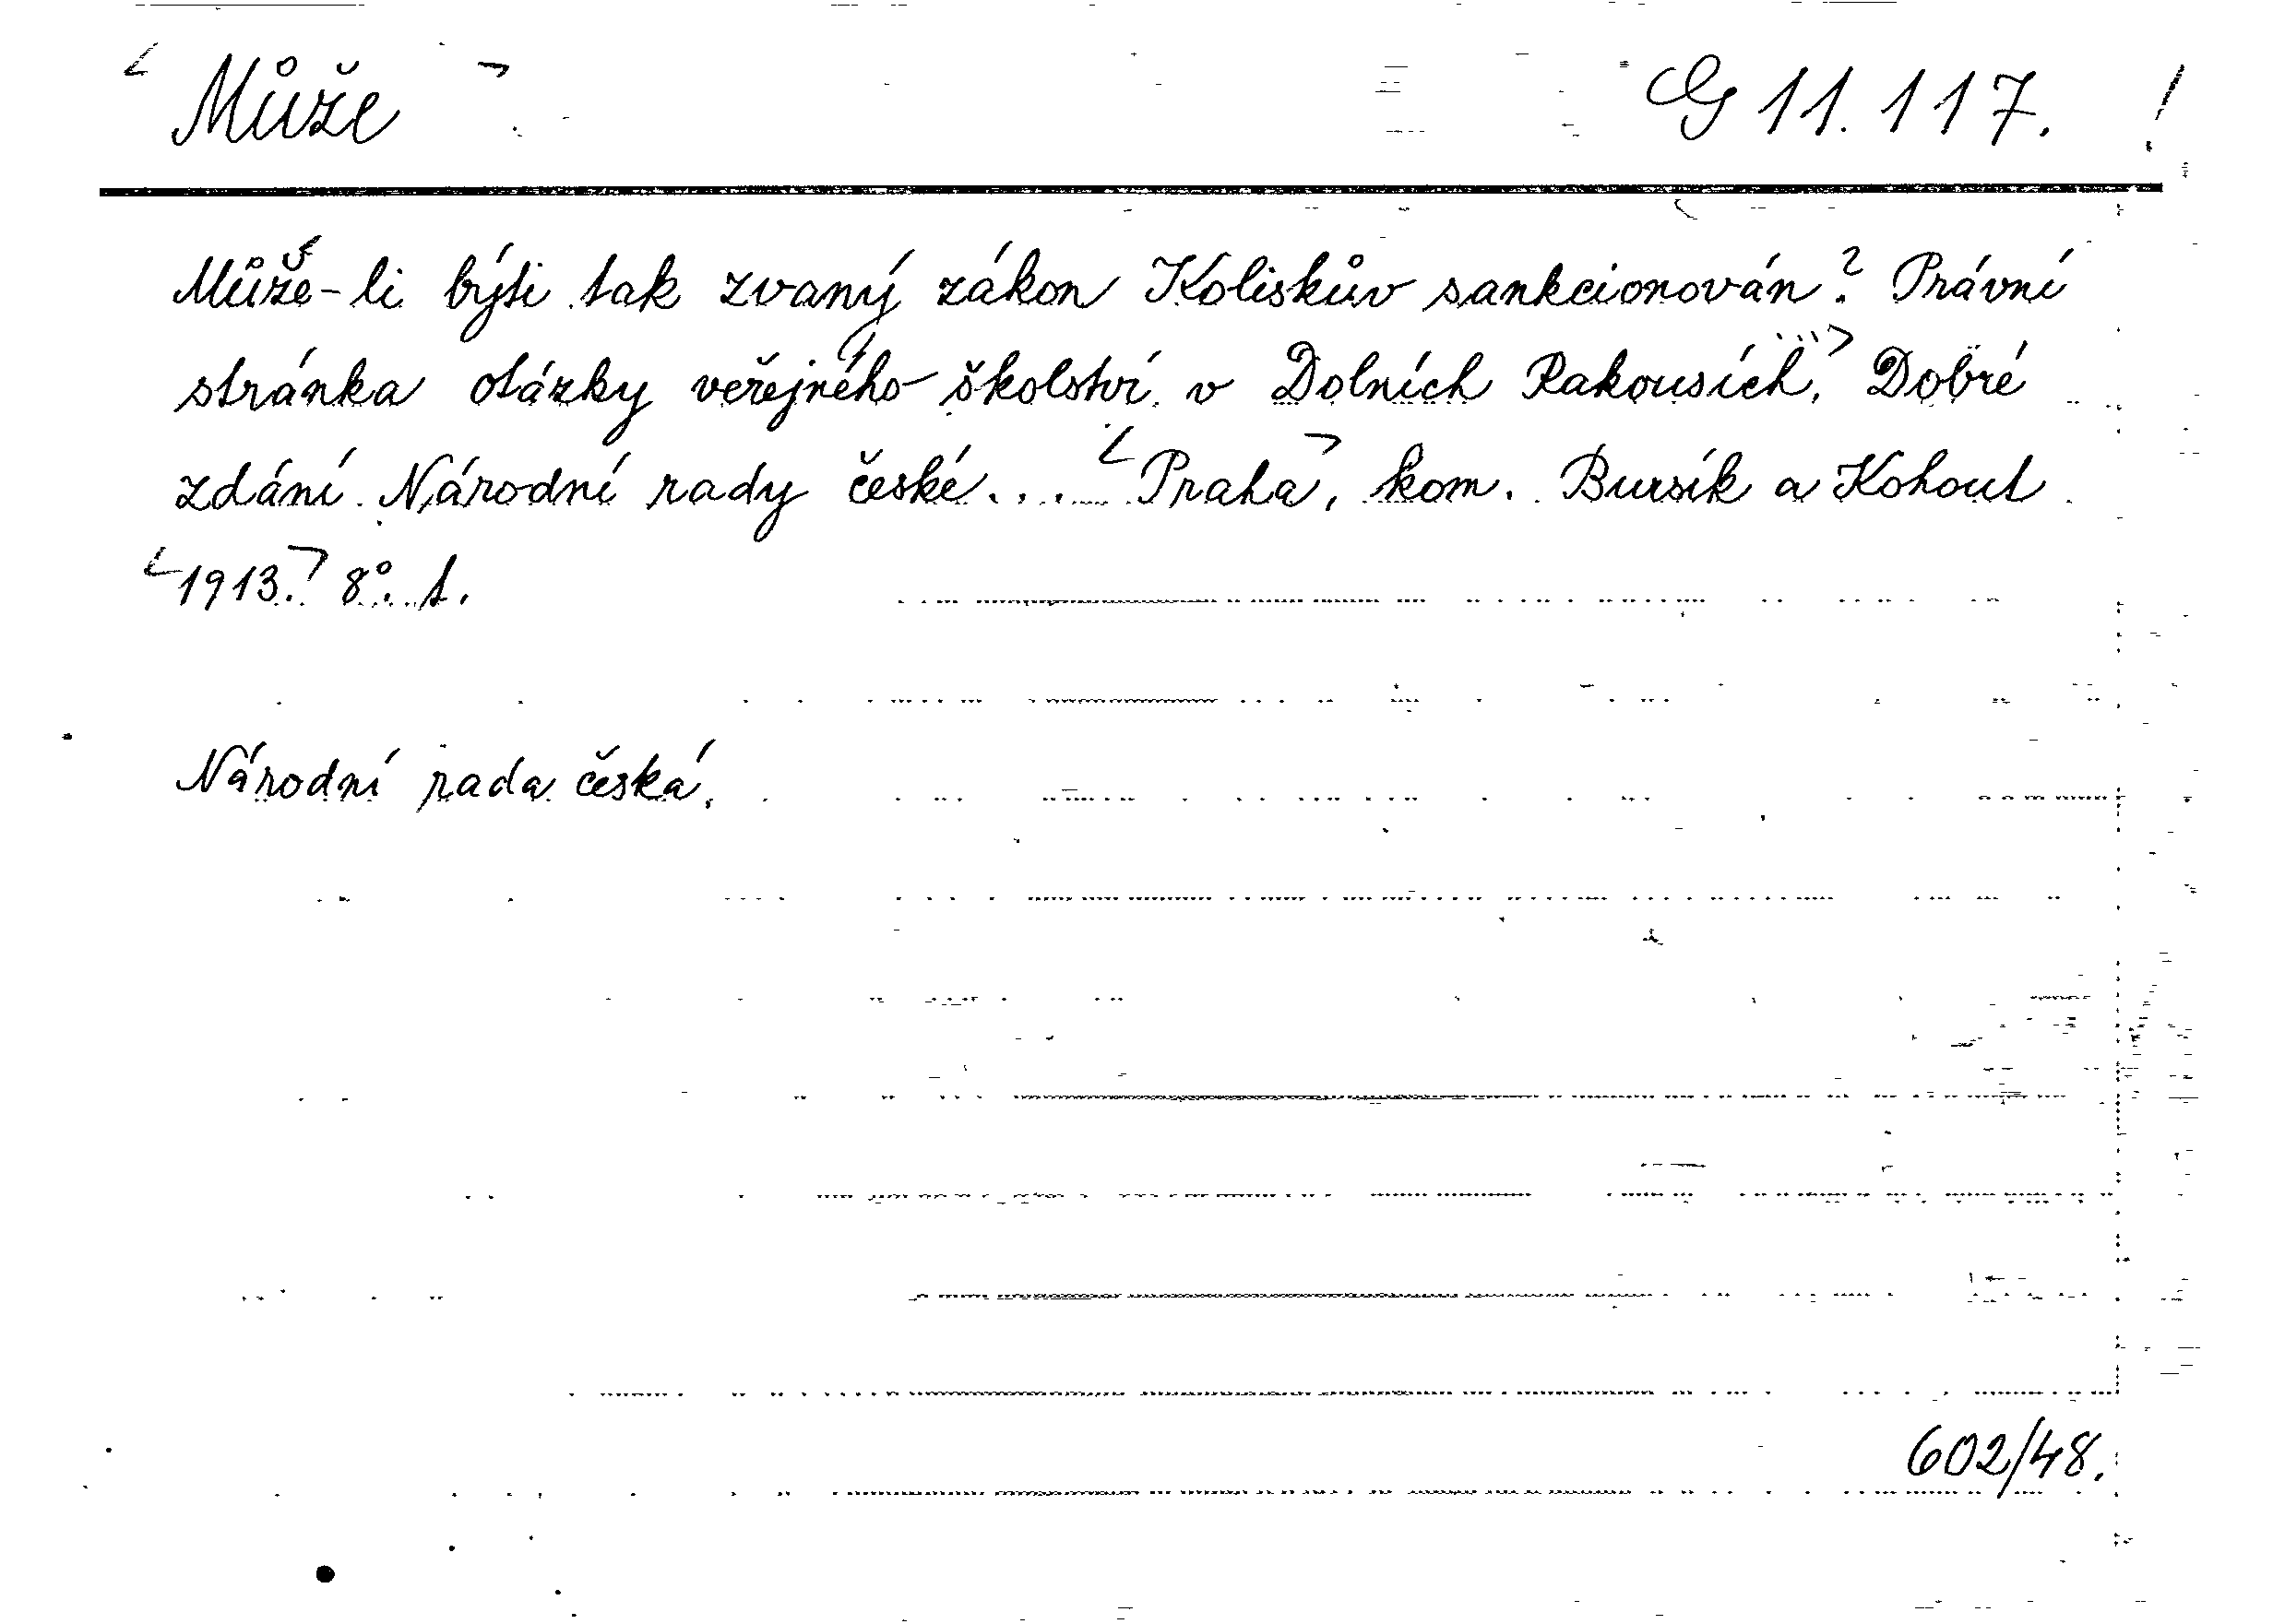 Může G 11.117. !
Může-li býti tak zvaný zákon Koliskův sankcionován? Právní
stránka otázky veřejného školství v Dolních Rakousích. Dobré
zdání Národní rady české... Praha, kom. Bursík a Kohout
1913. 8°. 1.
Národní rada česká.
602/48.